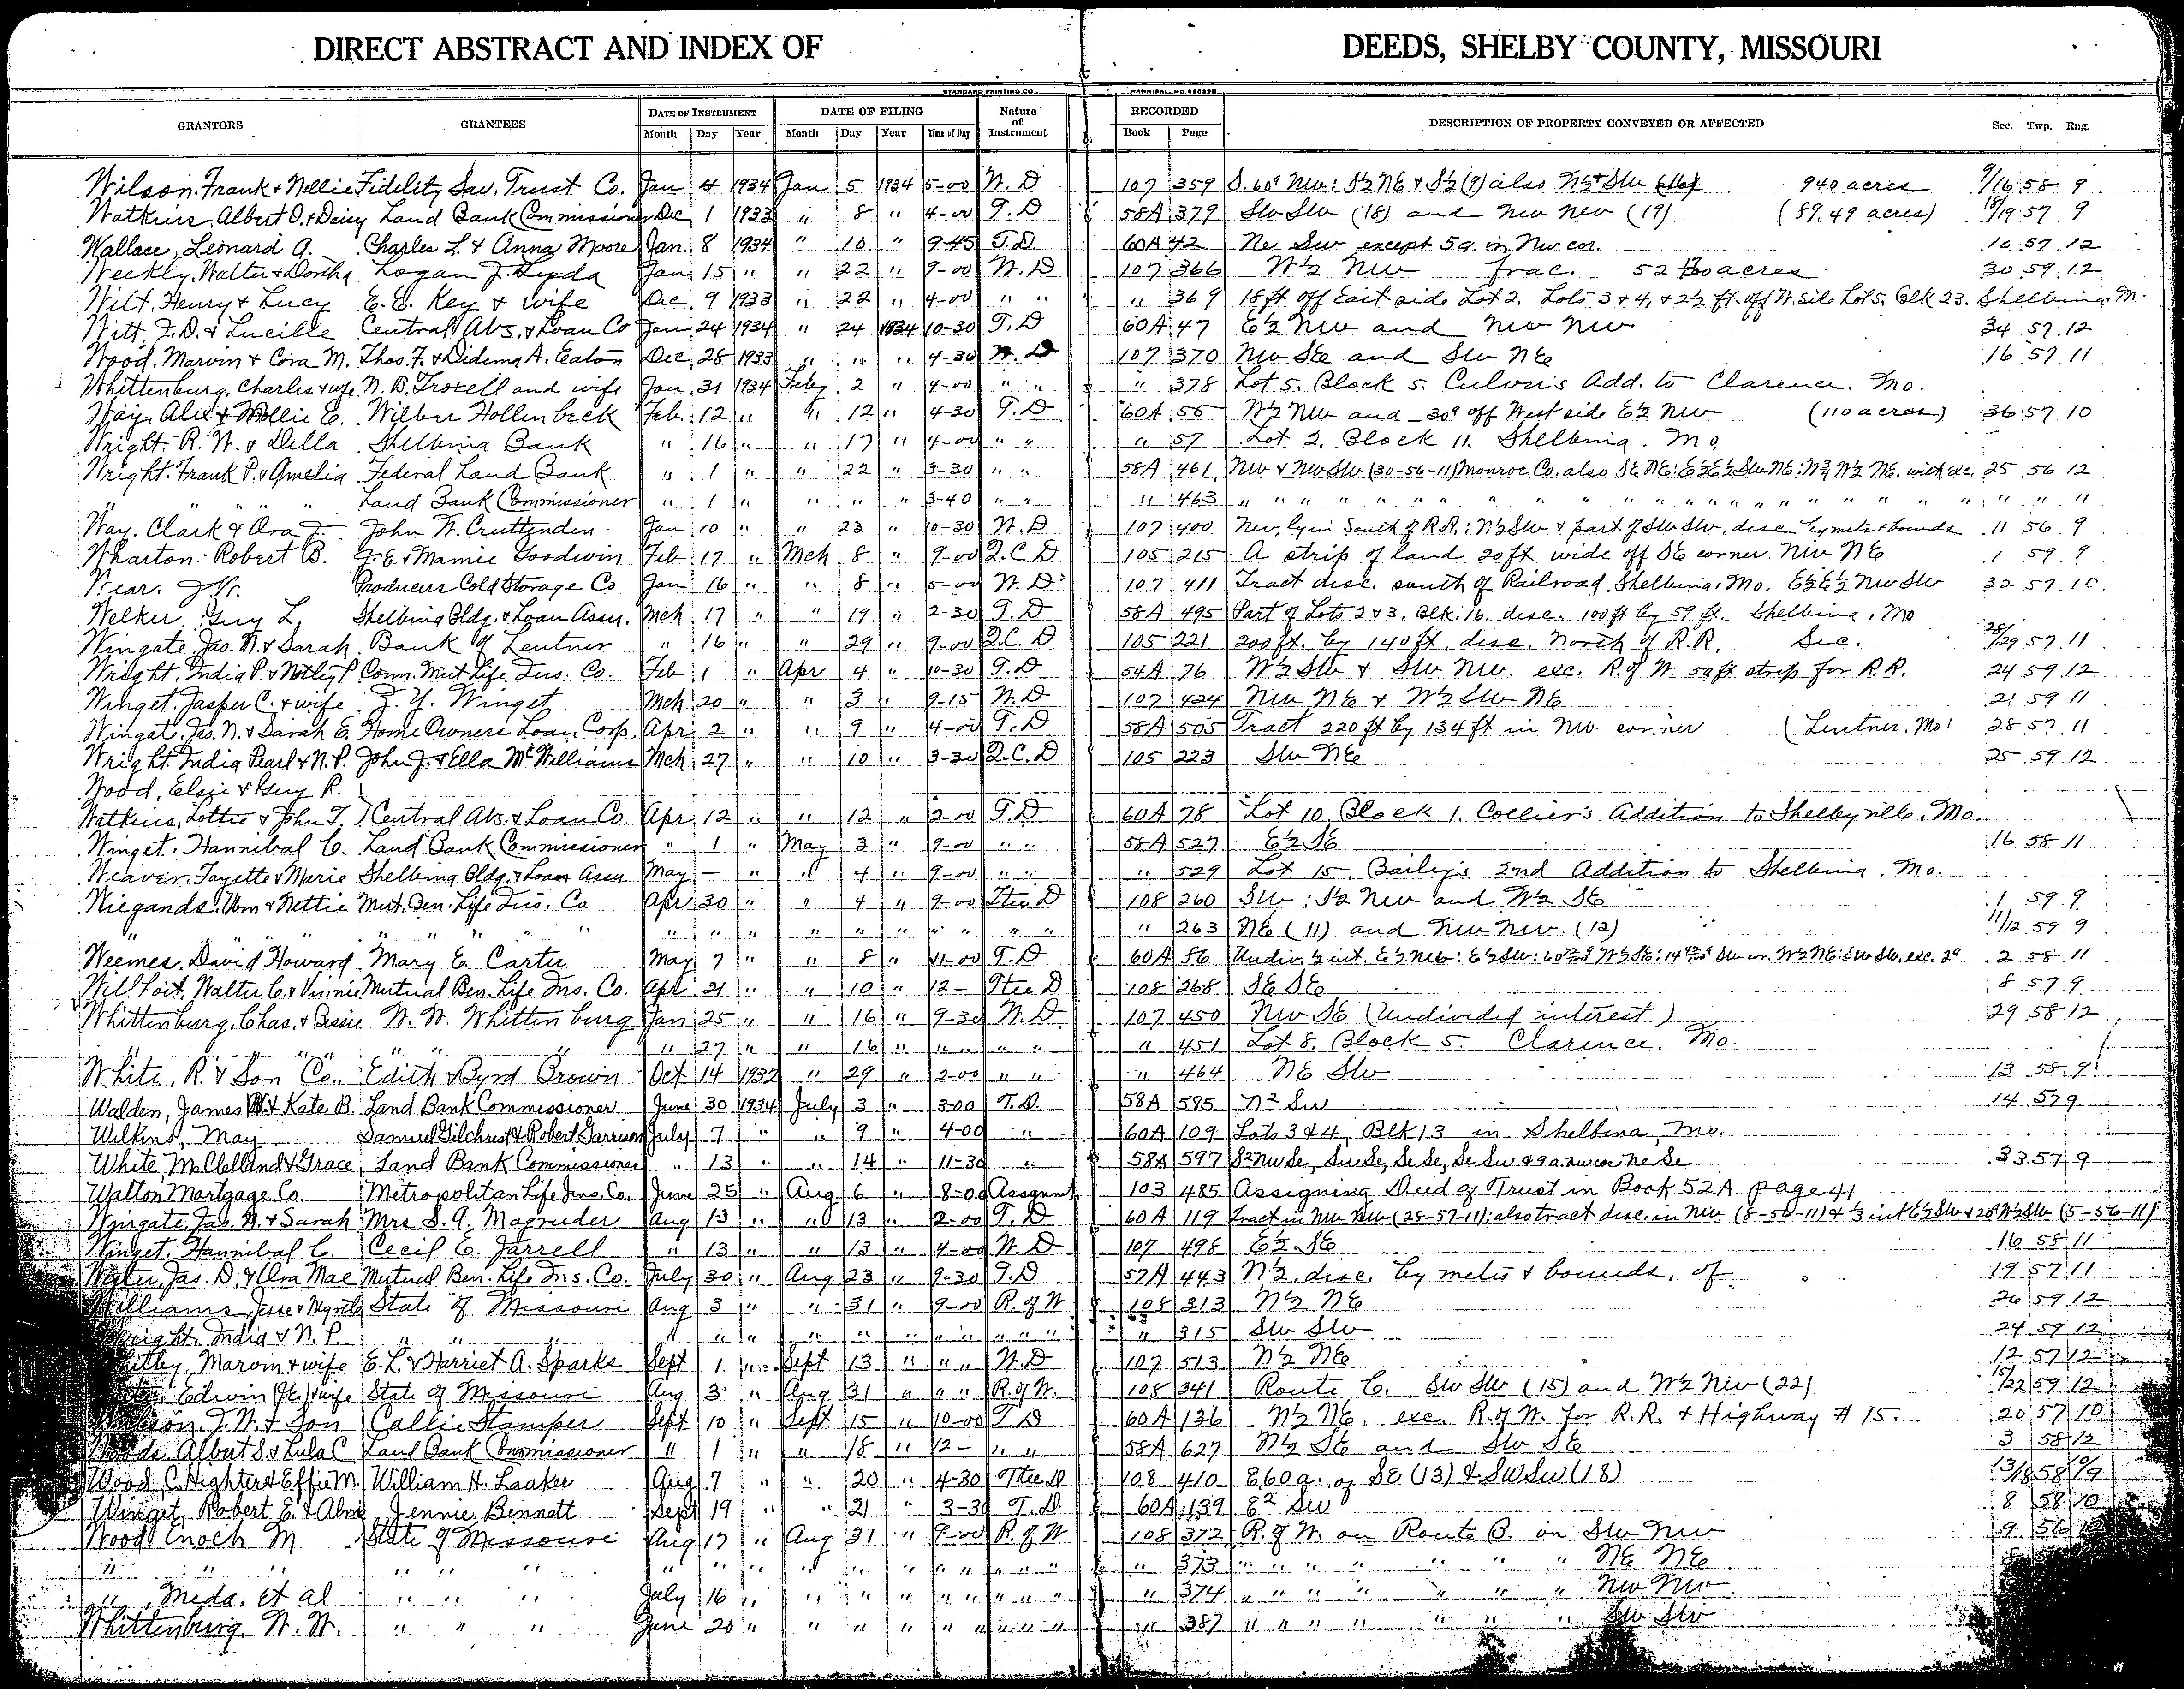 DIRECT ABSTRACT AND INDEX OF DEEDS, SHELBY COUNTY, MISSOURI
STANDARD PRINTING CO. HANNIBAL, MO.
GRANTORS GRANTEES DATE OF INSTRUMENT DATE OF FILING Nature of Instrument RECORDED DESCRIPTION OF PROPERTY CONVEYED OR AFFECTED Sec. Twp. Rng.
Month Day Year Month Day Year Time of Day Book Page
Wilson, Frank & Nellie Fidelity Sav. Trust Co. Jan 4 1934 Jan 5 1934 5-00 W. D 107 359 S. 60a Nw: S½ NE & S½ (9) also N½ & Sw 940 acres 9/16 58 9
Watkins, Albert O. & Daisy Land Bank Commissioner Dec 1 1933 " 8 " 4-00 T. D 58A 379 Sw Sw (18) and Nw Nw (19) (89.49 acres) 18/19 57 9
Wallace, Leonard A. Charles L. & Anna Moore Jan. 8 1934 " 10 " 9-45 T.D. 60A 42 Ne Sw except 5a. in Nw cor. 16 57 12
Weckly, Walter & Dortha Logan J. Jan 15 " " 22 " 9-00 W. D 107 366 W½ NW frac. 52 acres 30 59 12
Wilt, Henry & Lucy E. E. Key & wife Dec 9 1933 " 22 " 4-00 " " " 369 18 ft off East side Lot 2, Lots 3 & 4, & 2½ ft. off W. side Lot 5, Blk 23. Shelbina, M.
Witt, J.D. & Lucille Central Abs. & Loan Co Jan 24 1934 " 24 1934 10-30 T. D 60A 47 E½ NW and NW NW 34 57 12
Wood, Marvin & Cora M. Thos. F. & Didima A. Eaton Dec 28 1933 " " " 4-30 W. D 107 370 NW SE and SW NE 16 57 11
Whittenburg, Charlie & wife N. B. Troxell and wife Jan 31 1934 Feby 2 " 4-00 " " " 378 Lot 5. Block 5. Culver's Add. to Clarence. Mo.
Way, Alex & Mollie E. Wilber Hollenbeck Feb. 12 " " 12 " 4-30 T. D 60A 55 W½ NW and 30a off West side E½ NW (110 acres) 36 57 10
Wright, R. W. & Della Shelbina Bank " 16 " " 17 " 4-00 " " " 57 Lot 2. Block 11. Shelbina, Mo.
Wright, Frank P. & Amelia Federal Land Bank " 1 " " 22 " 3-30 " " 58A 461 NW & NW SW (30-56-11) Monroe Co. also SE NE: E½ E½ SW NE: W½ NE. with exc. 25 56 12
" " " " Land Bank Commissioner " 1 " " " " 3-40 " " " 463 " " " " " " " " " " " "
Way, Clark & Ora F. John W. Cruttenden Jan 10 " " 23 " 10-30 W. D 107 400 NW, lyin South of R.R.: N½ SW & part of SW SW, desc by metes & bounds 11 56 9
Wharton, Robert B. J. E. & Mamie Goodwin Feb 17 " Mch 8 " 9-00 Q. C. D 105 215 A strip of land 20 ft wide off SE corner NW NE 1 59 9
Wear, Jno. Producers Cold Storage Co Jan 16 " " 8 " 5-00 W. D 107 411 Tract desc. south of Railroad, Shelbina, Mo. E½ E½ NW SW 32 57 10
Welker, Guy L. Shelbina Bldg. & Loan Assn. Mch 17 " " 19 " 2-30 T. D 58A 495 Part of Lots 2 & 3, Blk. 16. desc. 100 ft by 59 ft. Shelbina, Mo
Wingate, Jas. N. & Sarah Bank of Lentner " 16 " " 29 " 9-00 Q.C. D 105 221 200 ft. by 140 ft. desc. North of R.R. Sec. 28/29 57 11
Wright, India P. & Notley P Conn. Mut Life Ins. Co. Feb 1 " Apr 4 " 10-30 T. D 54A 76 W½ SW & SW NW. exc. R. of W. 50 ft strip for R.R. 24 59 12
Winget, Jasper C. & wife Z. Y. Winget Mch 20 " " 3 " 9-15 W. D 107 424 NW NE & W½ SW NE 21 59 11
Wingate, Jas. N. & Sarah E. Home Owners Loan Corp. Apr 2 " " 9 " 4-00 T. D 58A 505 Tract 220 ft by 134 ft in NW corner (Lentner, Mo! 28 57 11
Wright, India Pearl & N.P. John J. & Ella McWilliams Mch 27 " " 10 " 3-30 Q.C. D 105 223 SW NE 25 59 12
Wood, Elsie & Guy R.
Watkins, Lottie & John T. Central Abs. & Loan Co. Apr 12 " " 12 " 2-00 T. D 60A 78 Lot 10, Block 1. Collier's Addition to Shelbyville, Mo.
Winget, Hannibal C. Land Bank Commissioner " 1 " May 3 " 9-00 " " 58A 527 E½ SE 16 58 11
Weaver, Fayette & Marie Shelbina Bldg. & Loan Assn May — " " 4 " 9-00 " " " 529 Lot 15, Bailey's 2nd Addition to Shelbina, Mo.
Wiegands, Wm & Nettie Mut. Ben. Life Ins. Co. Apr 30 " " 4 " 9-00 Ttee D 108 260 SW: S½ NW and W½ SE 1 59 9
" " " " " " " " " " " " " 263 NE (11) and NW NW. (12) 11/12 59 9
Weemes, David Howard Mary E. Carter May 7 " " 8 " 11-00 T. D 60A 86 Undiv. ½ int. E½ NW: E½ SW: W½ SE: SW cor. W½ NE: SW SW. exc. 2a 2 58 11
Willhoit, Walter C. & Vinnie Mutual Ben. Life Ins. Co. Apr 21 " " 10 " 12- Ttee D 108 268 SE SE 8 57 9
Whittenburg, Chas. & Bessie W. W. Whittenburg Jan 25 " " 16 " 9-30 W. D 107 450 NW SE (Undivided interest) 29 58 12
" " " " " " 27 " " 16 " " " " " " 451 Lot 8. Block 5. Clarence, Mo.
White, R. & Son Co. Edith & Byrd Brown Oct 14 1932 " 29 " 2-00 " " " 464 NE SW 13 58 9
Walden, James & Kate B. Land Bank Commissioner June 30 1934 July 3 " 3-00 T. D. 58A 585 N2 Sw 14 57 9
Wilkins, May Samuel Gilchrist & Robert Garrison July 7 " " 9 " 4-00 " 60A 109 Lots 3 & 4, Blk 13 in Shelbina, Mo.
White, McClelland & Grace Land Bank Commissioner " 13 " " 14 " 11-30 " 58A 597 S2 NW Se, Sw Se, Se Se, Se Sw & 9 a. nw cor Ne Se 33 57 9
Walton Mortgage Co. Metropolitan Life Ins. Co. June 25 " Aug 6 " 8-00 Assgnmt 103 485 Assigning Deed of Trust in Book 52A page 41
Wingate, Jas. N. & Sarah Mrs S. A. Magruder Aug 13 " " 13 " 2-00 T. D 60A 119 Tract in NW NW (28-57-11); also tract desc. in NW (8-56-11) & ⅓ int E½ SW & W½ SW (5-56-11)
Winget, Hannibal C. Cecil E. Jarrell " 13 " " 13 " 4-00 W. D 107 498 E½ SE 16 58 11
Jas. D. & Ora Mae Mutual Ben. Life Ins. Co. July 30 " Aug 23 " 9-30 T. D 57A 443 N½, desc. by metes & bounds, of 19 57 11
Williams, Jesse & Myrtle State of Missouri Aug 3 " " 31 " 9-00 R. of W 108 313 N½ NE 26 59 12
Wright, India & N. P. " " " " " " " " " " " " 315 SW SW 24 59 12
Whitby, Marvin & wife E. L. & Harriet A. Sparks Sept 1 " Sept 13 " " " W. D 107 513 N½ NE 12 57 12
Edwin & wife State of Missouri Aug 3 " Aug 31 " " " R. of W. 108 341 Route C. SW SW (15) and W½ NW (22) 15/22 59 12
J. W. & Son Callie Stamper Sept 10 " Sept 15 " 10-00 T. D 60A 136 N½ NE. exc. R. of W. for R.R. & Highway # 15. 20 57 10
Woods, Albert S. & Lula C Land Bank Commissioner " 1 " " 18 " 12- " " 58A 627 N½ SE and SW SE 3 58 12
Wood, C. Hightere & Effie M. William H. Laaker Aug 7 " " 20 " 4-30 Ttee D 108 410 E 60 a. of SE (13) & SW SW (18) 13/18 58 9/9
Winget, Robert E. & Alma Jennie Bennett Sept 19 " " 21 " 3-30 T. D. 60A 139 E2 SW 8 58 10
Wood Enoch M State of Missouri Aug 17 " Aug 31 " 9-00 R. of W 108 372 R. of W. on Route B. in SW NW 9 56 12
" " " " " " " " " " " " " " " " " 373 " " " " " " " NE NE
" , Meda, et al " " " July 16 " " " " " " " " " " 374 " " " " " " " NW NW
Whittenburg, W. W. " " " June 20 " " " " " " " " " " 387 " " " " " " " SW SW